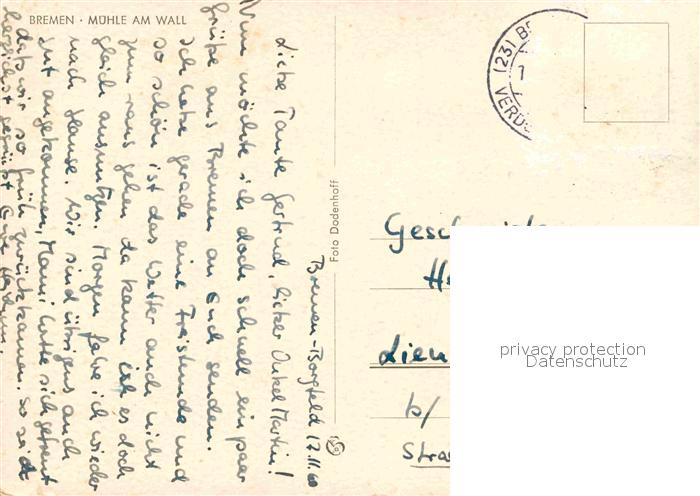 BREMEN · MÜHLE AM WALL
Bremen-Borgfeld 17.11.60
Liebe Tante Gertrud, lieber Onkel Martin!
Nun möchte ich doch schnell ein paar
Grüße aus Bremen an Euch senden.
Ich habe gerade eine Freistunde und
so schön ist das Wetter auch nicht
zum raus gehen da kann ich es doch
gleich ausnutzen. Morgen fahre ich wieder
nach Hause. Wir sind übrigens auch
gut angekommen, Mami hatte sich gefreut
daß wir so früh zurückkamen. So seid
herzlichst gegrüßt Eure
Foto Dodenhoff
(23) B
VERD
Gesch
H
Lieu
b/
Stra
privacy protection
Datenschutz